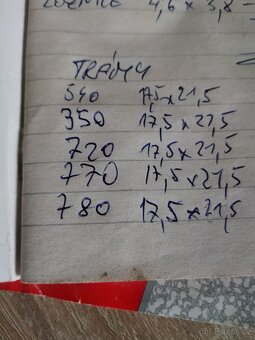 4,6 x 3,8
TRÁMY
540 17,5 x 21,5
350 17,5 x 21,5
720 17,5 x 21,5
770 17,5 x 21,5
780 17,5 x 21,5